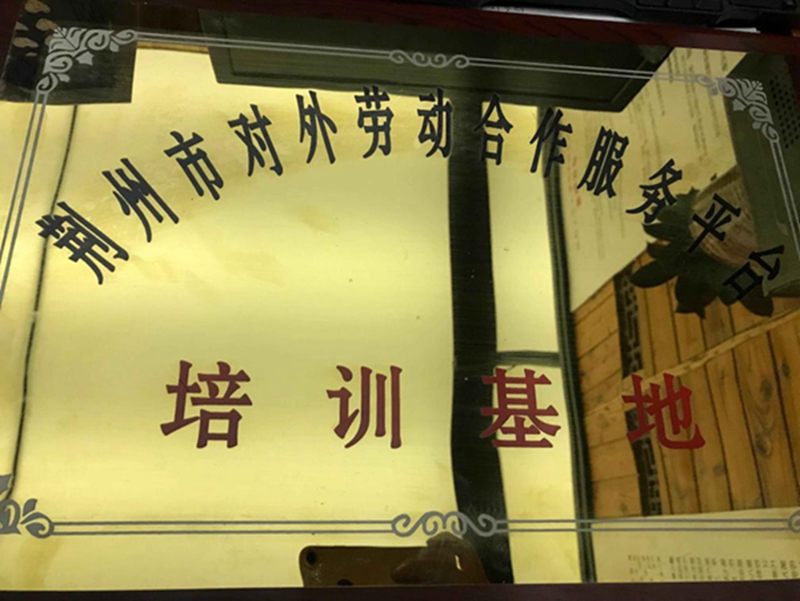 荆州市对外劳动合作服务平台
培训基地